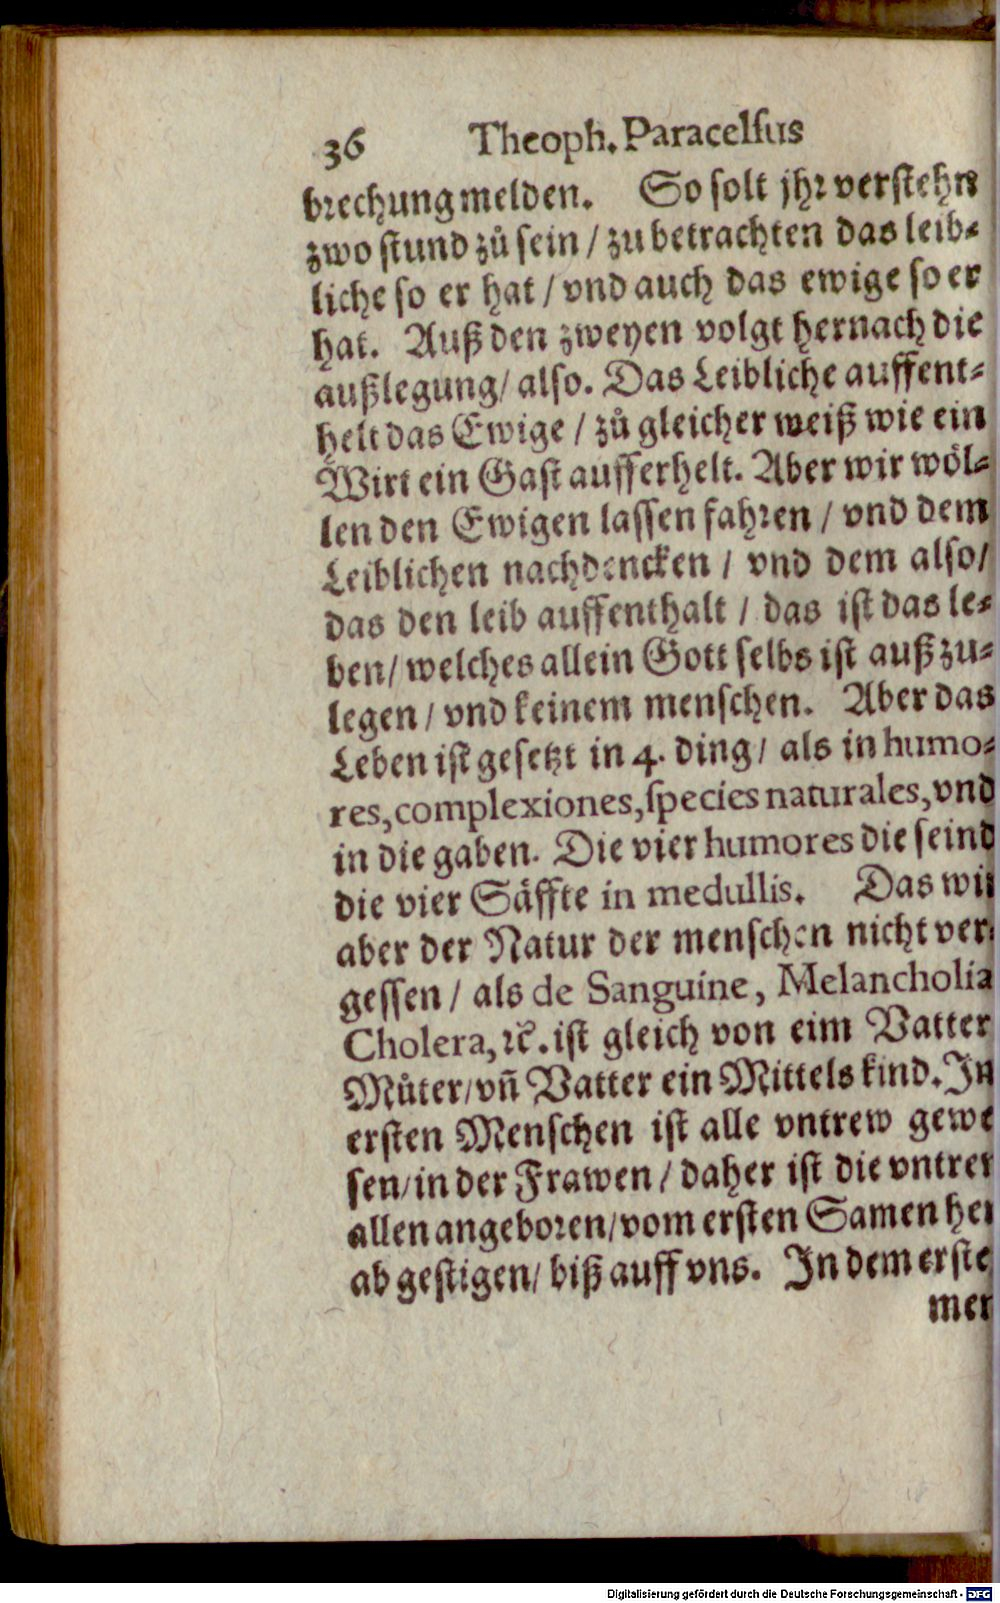 36 Theoph. Paracelsus
brechung melden. So solt jhr verstehn
zwo stund zů sein / zu betrachten das leib-
liche so er hat / vnd auch das ewige so er
hat. Auß den zweyen volgt hernach die
außlegung / also. Das Leibliche auffent-
helt das Ewige / zů gleicher weiß wie ein
Wirt ein Gast aufferhelt. Aber wir wöl-
len den Ewigen lassen fahren / vnd dem
Leiblichen nachdencken / vnd dem also /
das den leib auffenthalt / das ist das le-
ben / welches allein Gott selbs ist auß zu-
legen / vnd keinem menschen. Aber das
Leben ist gesetzt in 4. ding / als in humo-
res, complexiones, species naturales, vnd
in die gaben. Die vier humores die seind
die vier Säffte in medullis. Das wir
aber der Natur der menschen nicht ver-
gessen / als de Sanguine, Melancholia
Cholera, ꝛc. ist gleich von eim Vatter
Můter / vñ Vatter ein Mittels kind. In
ersten Menschen ist alle vntrew gewe
sen / in der Frawen / daher ist die vntrew
allen angeboren / vom ersten Samen her
ab gestigen / biß auff vns. In dem erste
men
Digitalisierung gefördert durch die Deutsche Forschungsgemeinschaft - DFG